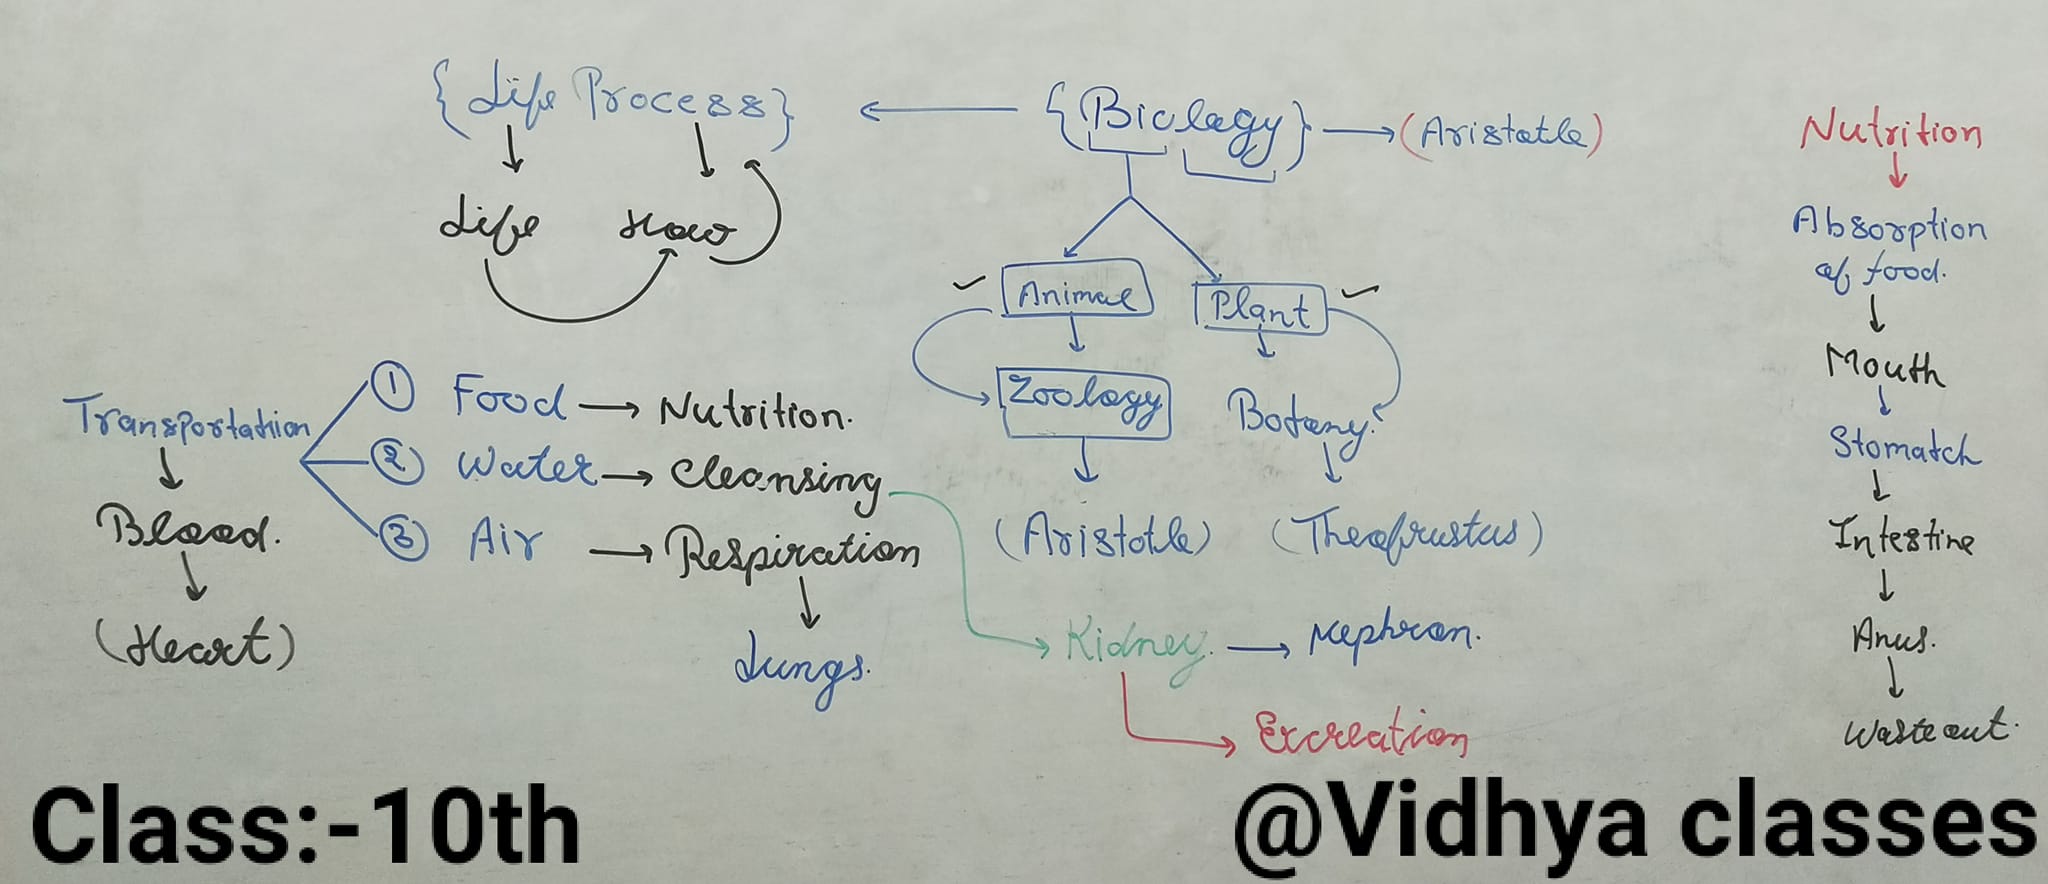 {Life Process} ← {Biology} → (Aristotle)
Life How
Animal Plant
Zoology Botany.
(Aristotle) (Theofrustus)
Transportation
Blood.
(Heart)
① Food → Nutrition.
② Water → Cleansing
③ Air → Respiration
Lungs.
Kidney. → Nephron.
Excreation
Nutrition
Absorption
of food.
Mouth
Stomatch
Intestine
Anus.
Waste out.
Class:-10th
@Vidhya classes